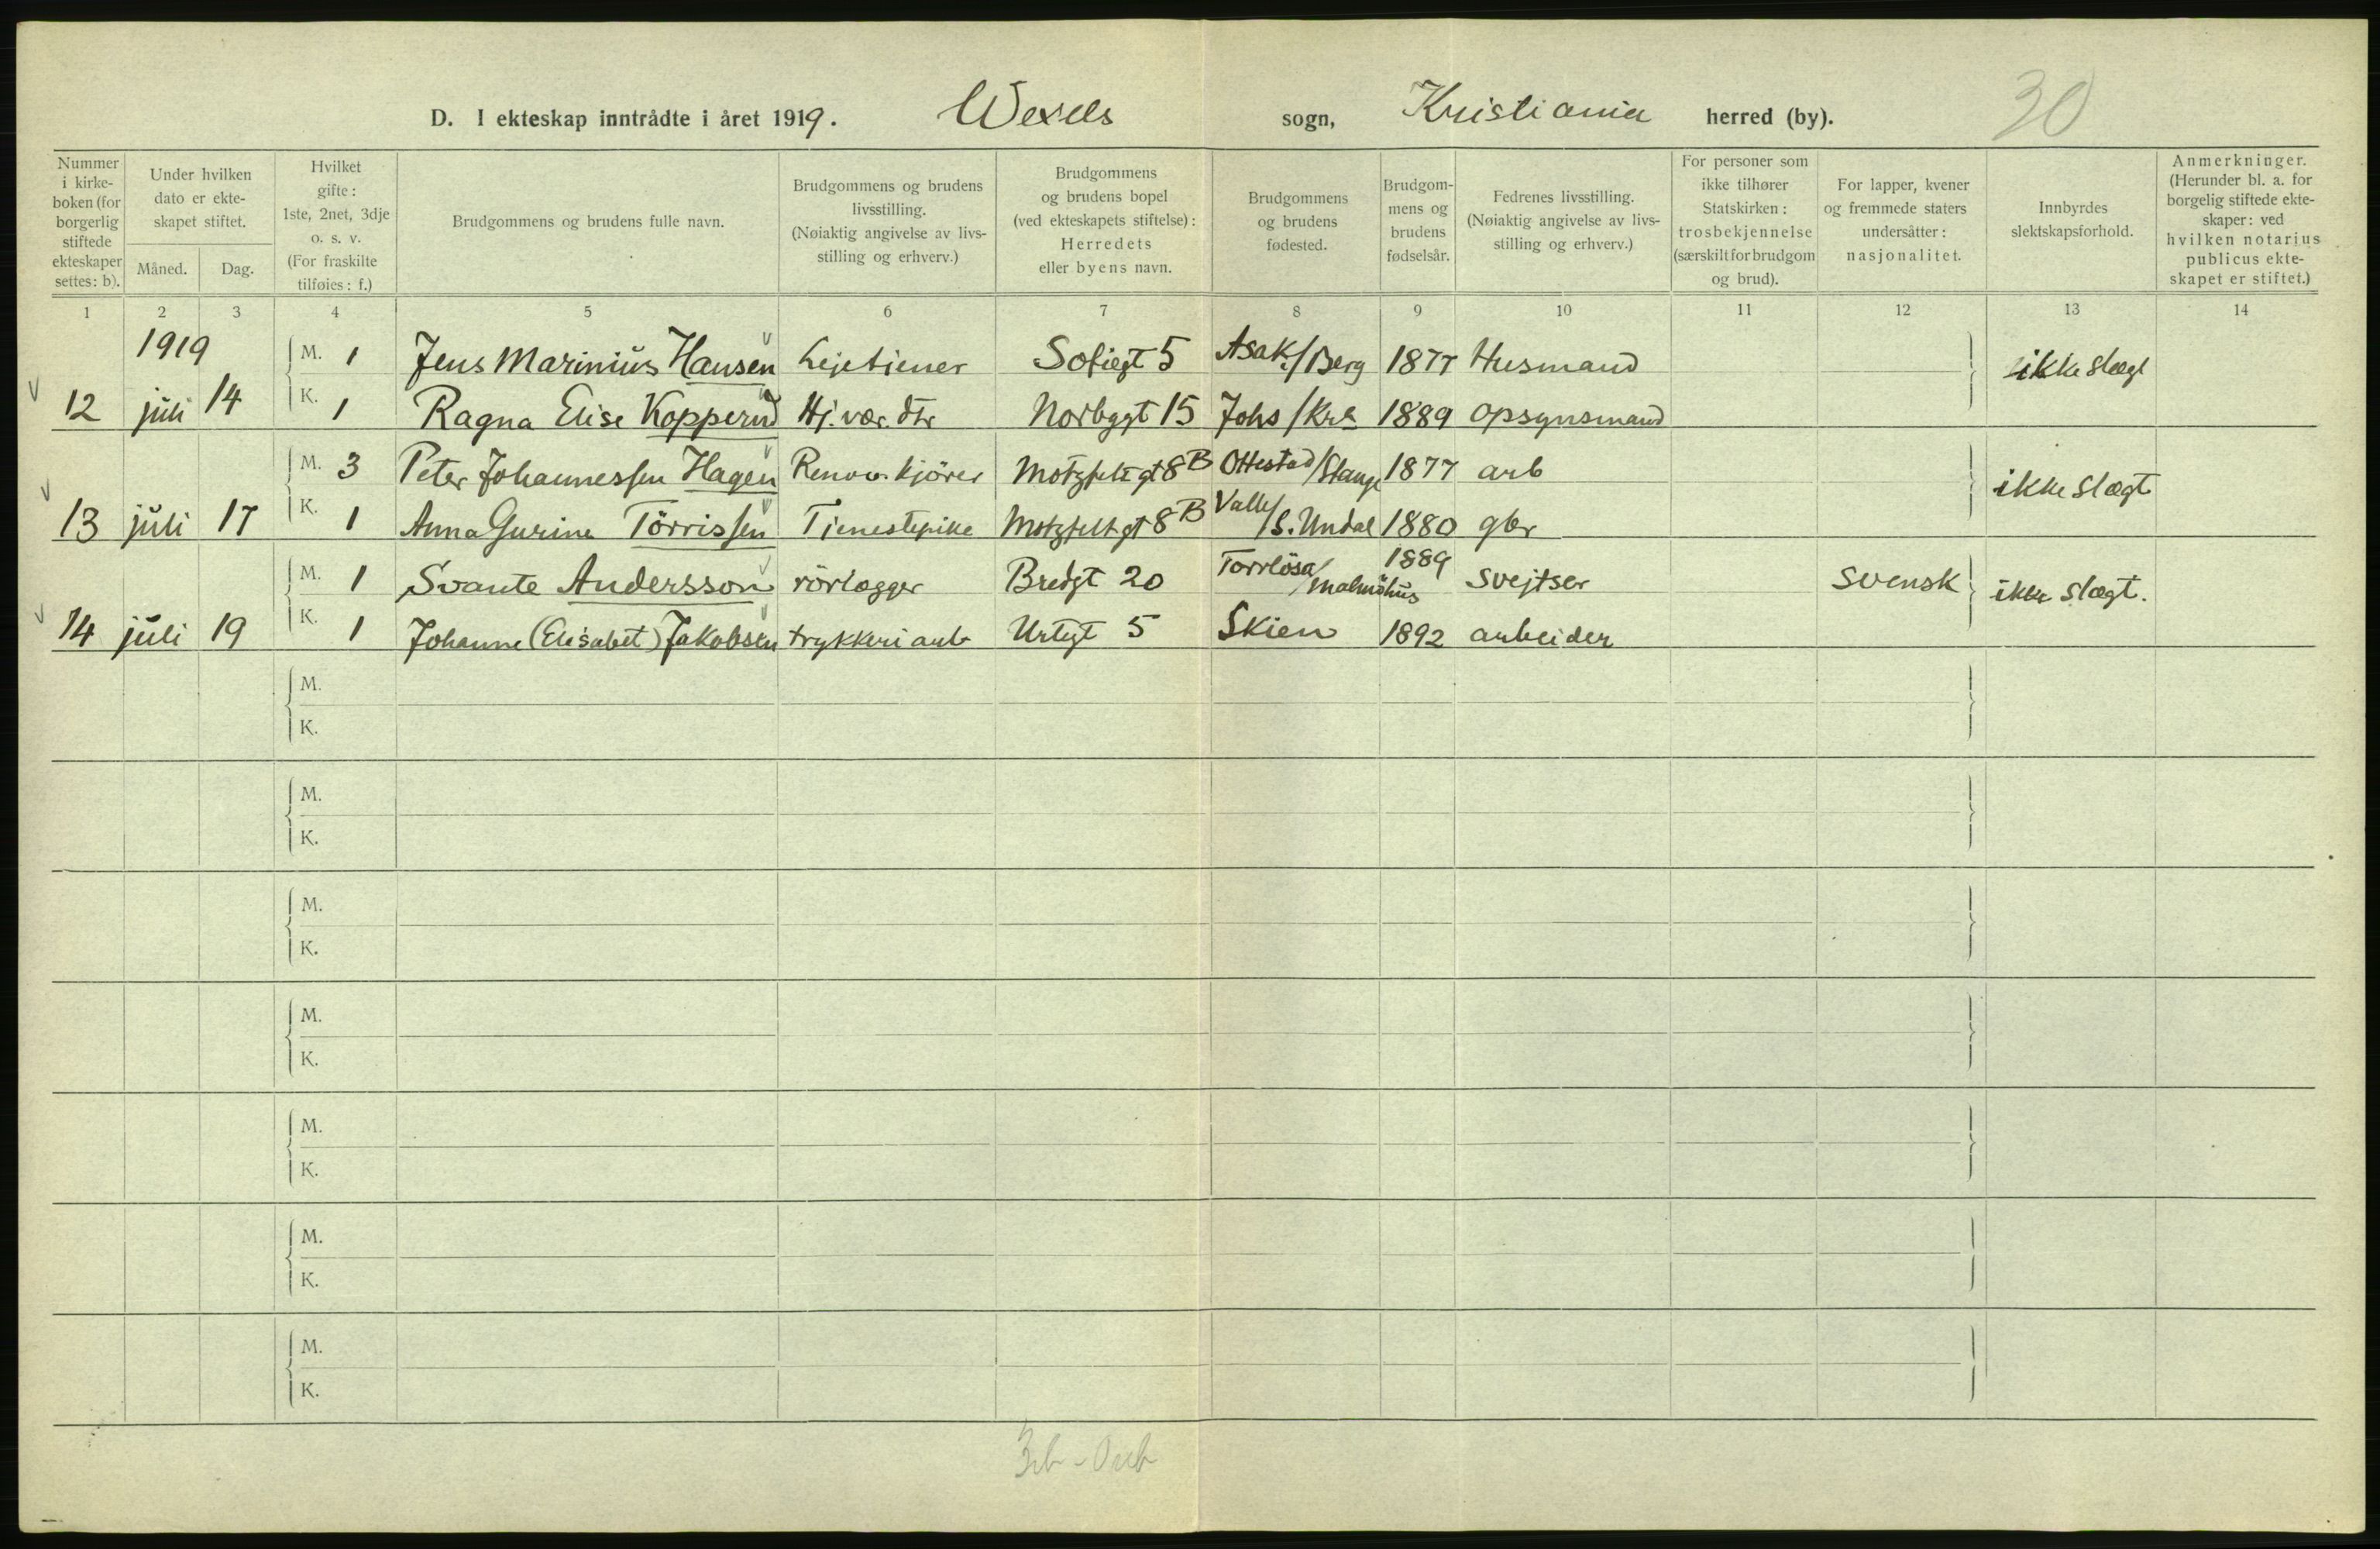 D. I ekteskap inntrådte i året 1919. Wexels sogn, Kristiania herred (by). 30
Nummer i kirke- boken (for borgerlig stiftede ekteskaper settes: b).
Under hvilken dato er ekte- skapet stiftet.
Måned. Dag.
Hvilket gifte: 1ste, 2net, 3dje o. s. v. (For fraskilte tilføies: f.)
Brudgommens og brudens fulle navn.
Brudgommens og brudens livsstilling. (Nøiaktig angivelse av livs- stilling og erhverv.)
Brudgommens og brudens bopel (ved ekteskapets stiftelse): Herredets eller byens navn.
Brudgommens og brudens fødested.
Brudgom- mens og brudens fødselsår.
Fedrenes livsstilling. (Nøiaktig angivelse av livs- stilling og erhverv.)
For personer som ikke tilhører Statskirken: trosbekjennelse (særskilt for brudgom og brud).
For lapper, kvener og fremmede staters undersåtter: nasjonalitet.
Innbyrdes slektskapsforhold.
Anmerkninger. (Herunder bl. a. for borgelig stiftede ekte- skaper: ved hvilken notarius publicus ekte- skapet er stiftet.)
1 2 3 4 5 6 7 8 9 10 11 12 13 14
1919 M. 1 Jens Marinius Hansen Lejetjener Sofiegt 5 Asak/Berg 1877 Husmand ikke slægt
12 juli 14 K. 1 Ragna Elise Kopperud Hj. vær. dtr Norbygt 15 Johs/Kr.a 1889 opsynsmand
M. 3 Peter Johannessen Hagen Renov. kjörer Motzfeldtgt 8B Ottestad/Stange 1877 arb ikke slægt
13 juli 17 K. 1 Anna Gurine Törrissen Tjenestepike Motzfeldtgt 8B Valle/S. Undal 1880 gbr
M. 1 Svante Andersson rörlægger Bredgt 20 Torrlösa/Malmöhus 1889 svejtser svensk ikke slægt.
14 juli 19 K. 1 Johanne (Elisabet) Jakobsen trykkeriarb Urtegt 5 Skien 1892 arbeider
M.
K.
M.
K.
M.
K.
M.
K.
M.
K.
M.
K.
M.
K.